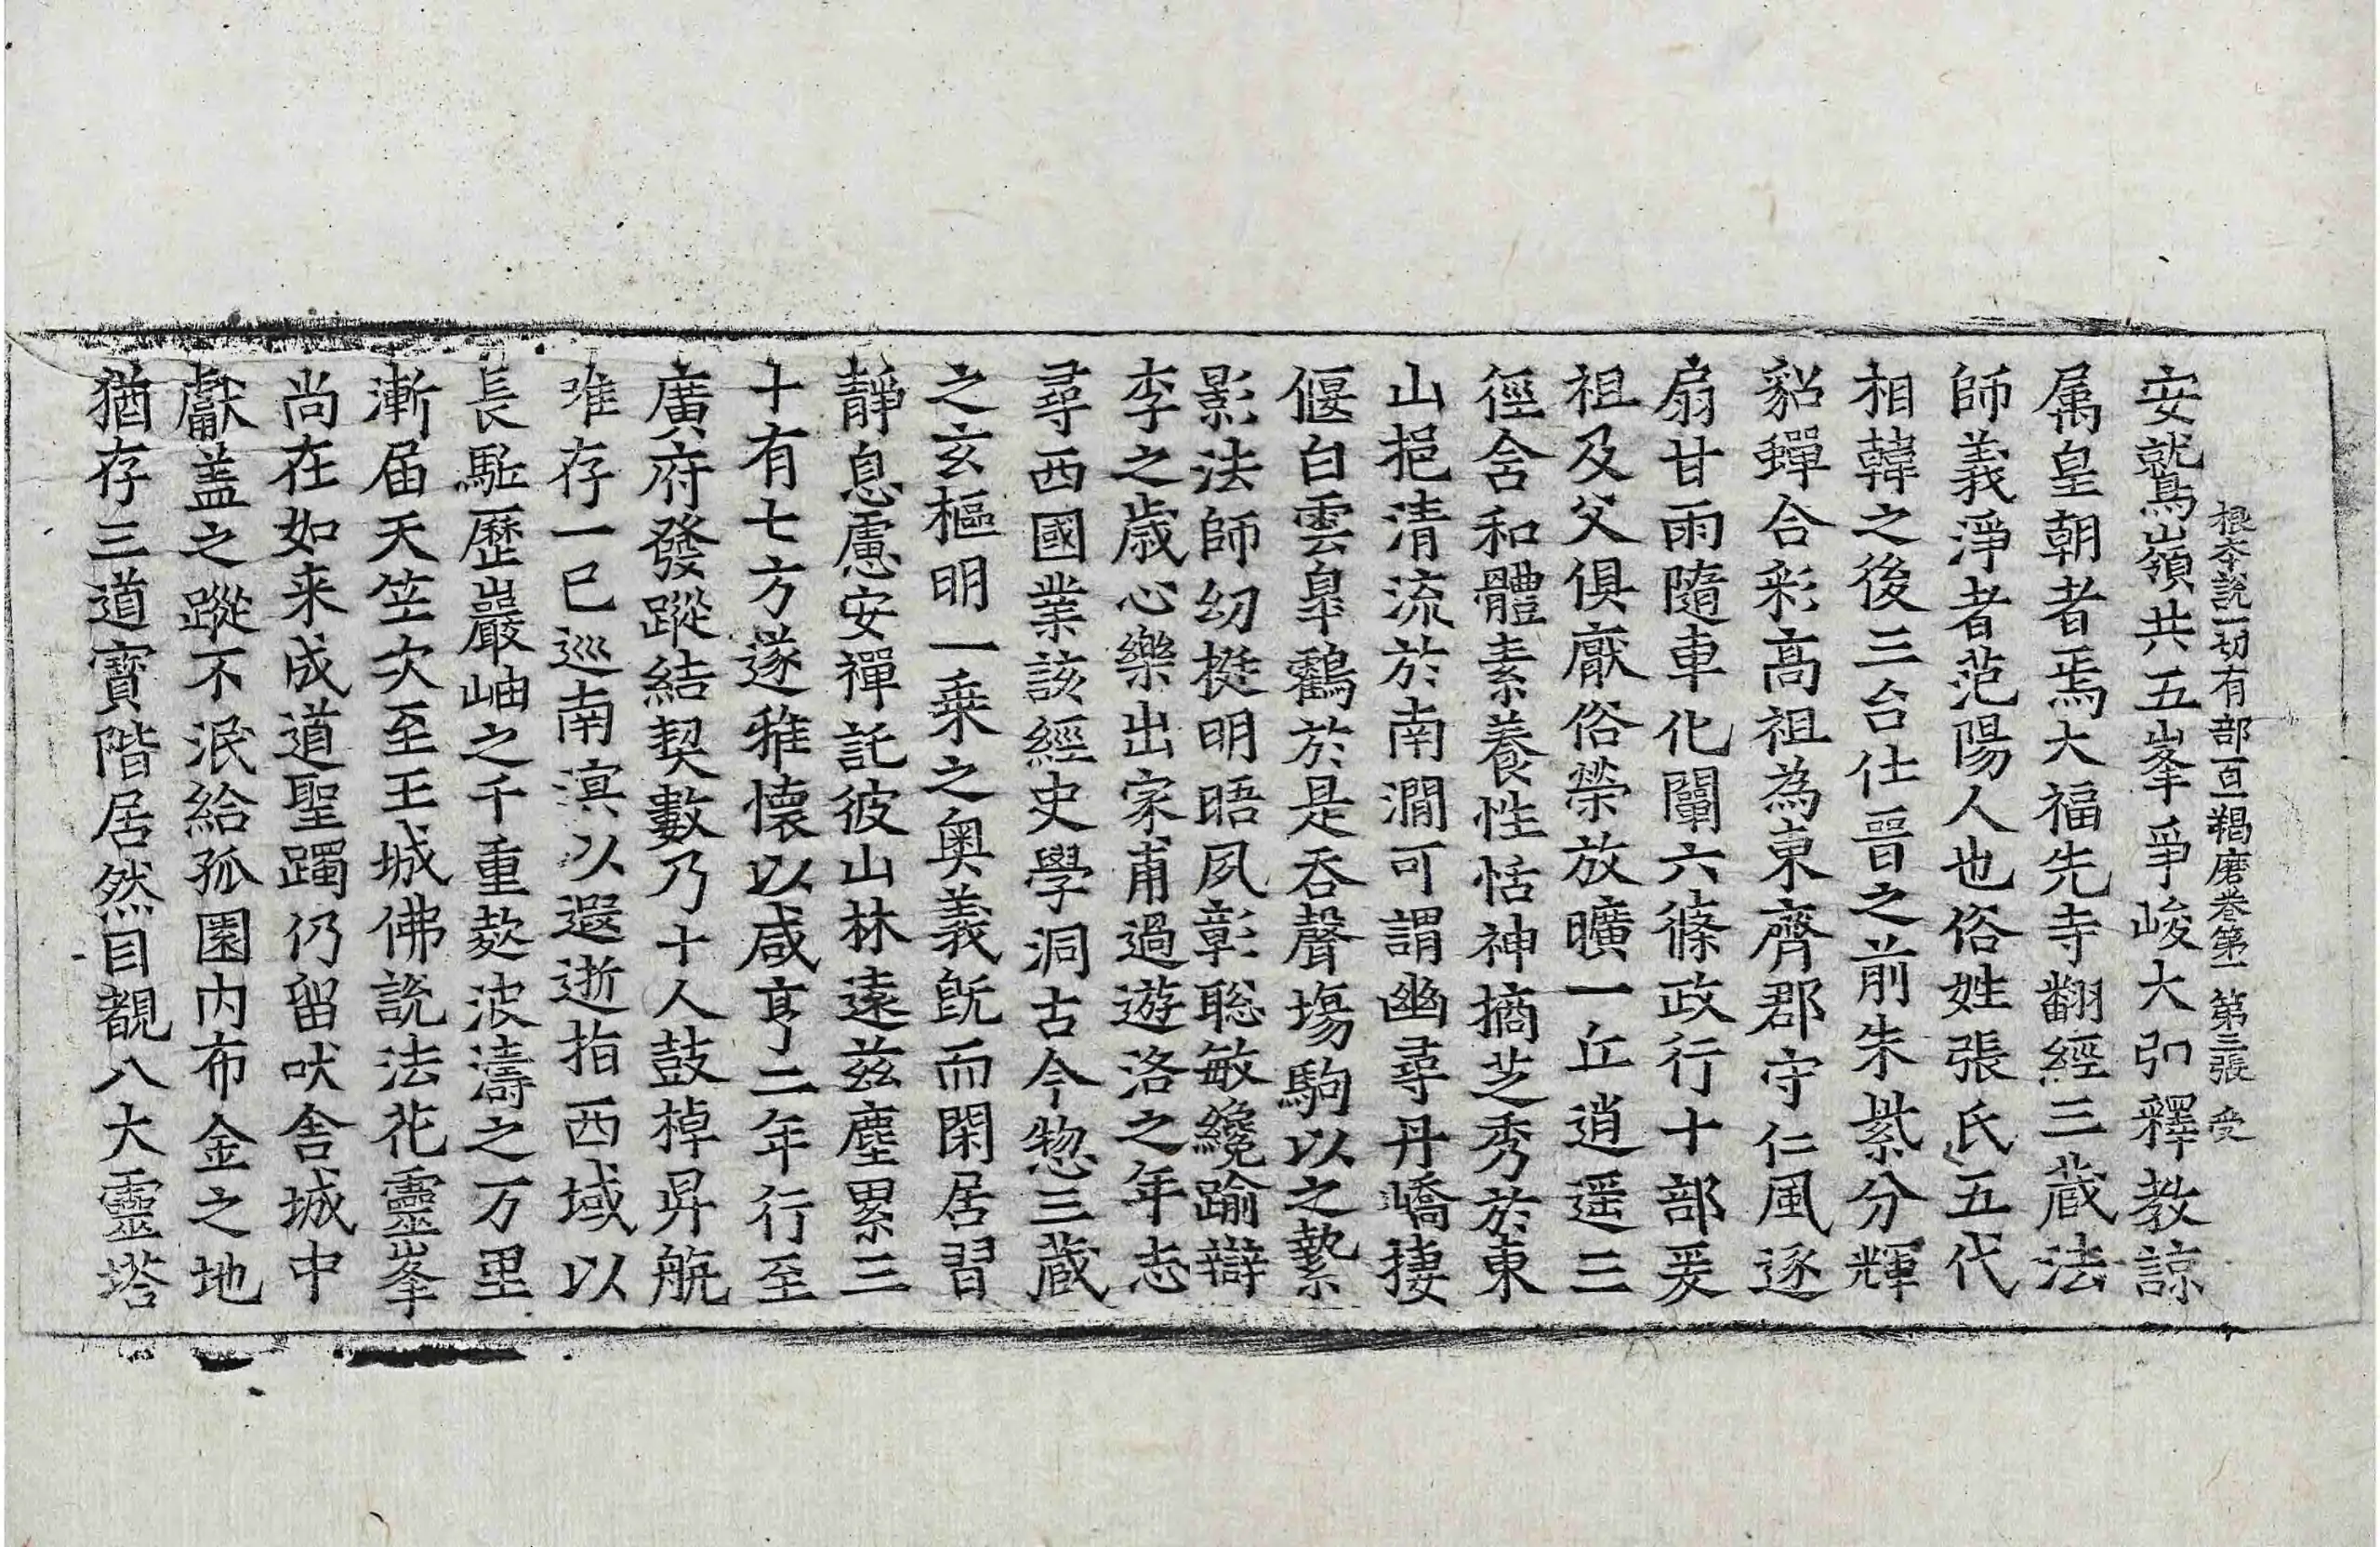 根本說一切有部百一羯磨卷第一 第三張 受
安就鷲嶺共五峯爭峻大弘釋教諒
属皇朝者焉大福先寺翻經三蔵法
師義淨者范陽人也俗姓張氏五代
相韓之後三台仕晉之前朱紫分輝
貂蟬合彩高祖為東齊郡守仁風逐
扇甘雨隨車化闡六條政行十部爰
祖及父俱厭俗榮放曠一丘逍遥三
徑含和體素養性恬神摘芝秀於東
山挹清流於南澗可謂幽尋丹嶠捿
偃白雲皐鶴於是吞聲塲駒以之縶
影法師幼挺明晤夙彰聡敏纔踰辯
李之歲心樂出家甫過遊洛之年志
尋西國業該經史學洞古今惣三蔵
之玄樞明一乗之奥義既而閑居習
靜息慮安禪託彼山林遠兹塵累三
十有七方遂雅懷以咸亨二年行至
廣府發蹤結契數乃十人鼓棹昇航
唯存一已巡南溟以遐逝指西域以
長駈歷巖岫之千重㳄波濤之万里
漸届天竺次至王城佛說法花靈峯
尚在如来成道聖躅仍留吠舍城中
獻盖之蹤不泯給孤園内布金之地
猶存三道寶階居然目覩八大靈塔